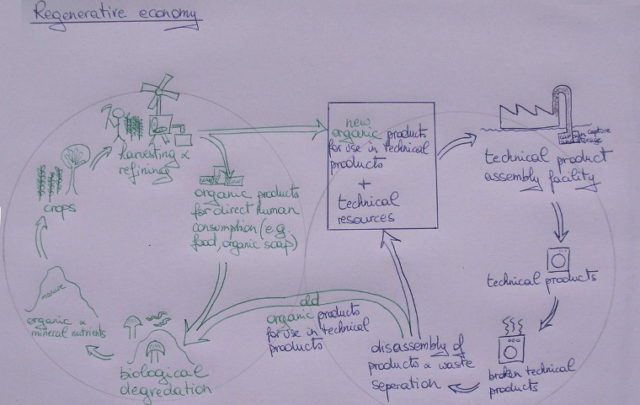 Regenerative economy
harvesting &
refining
crops
organic products
for direct human
consumption (e.g.
food, organic soap)
manure
organic &
mineral nutrients
biological
degredation
new
organic products
for use in technical
products
+
technical
resources
capture
technical product
assembly facility
technical products
broken technical
products
disassembly of
products & waste
seperation
old
organic products
for use in technical
products